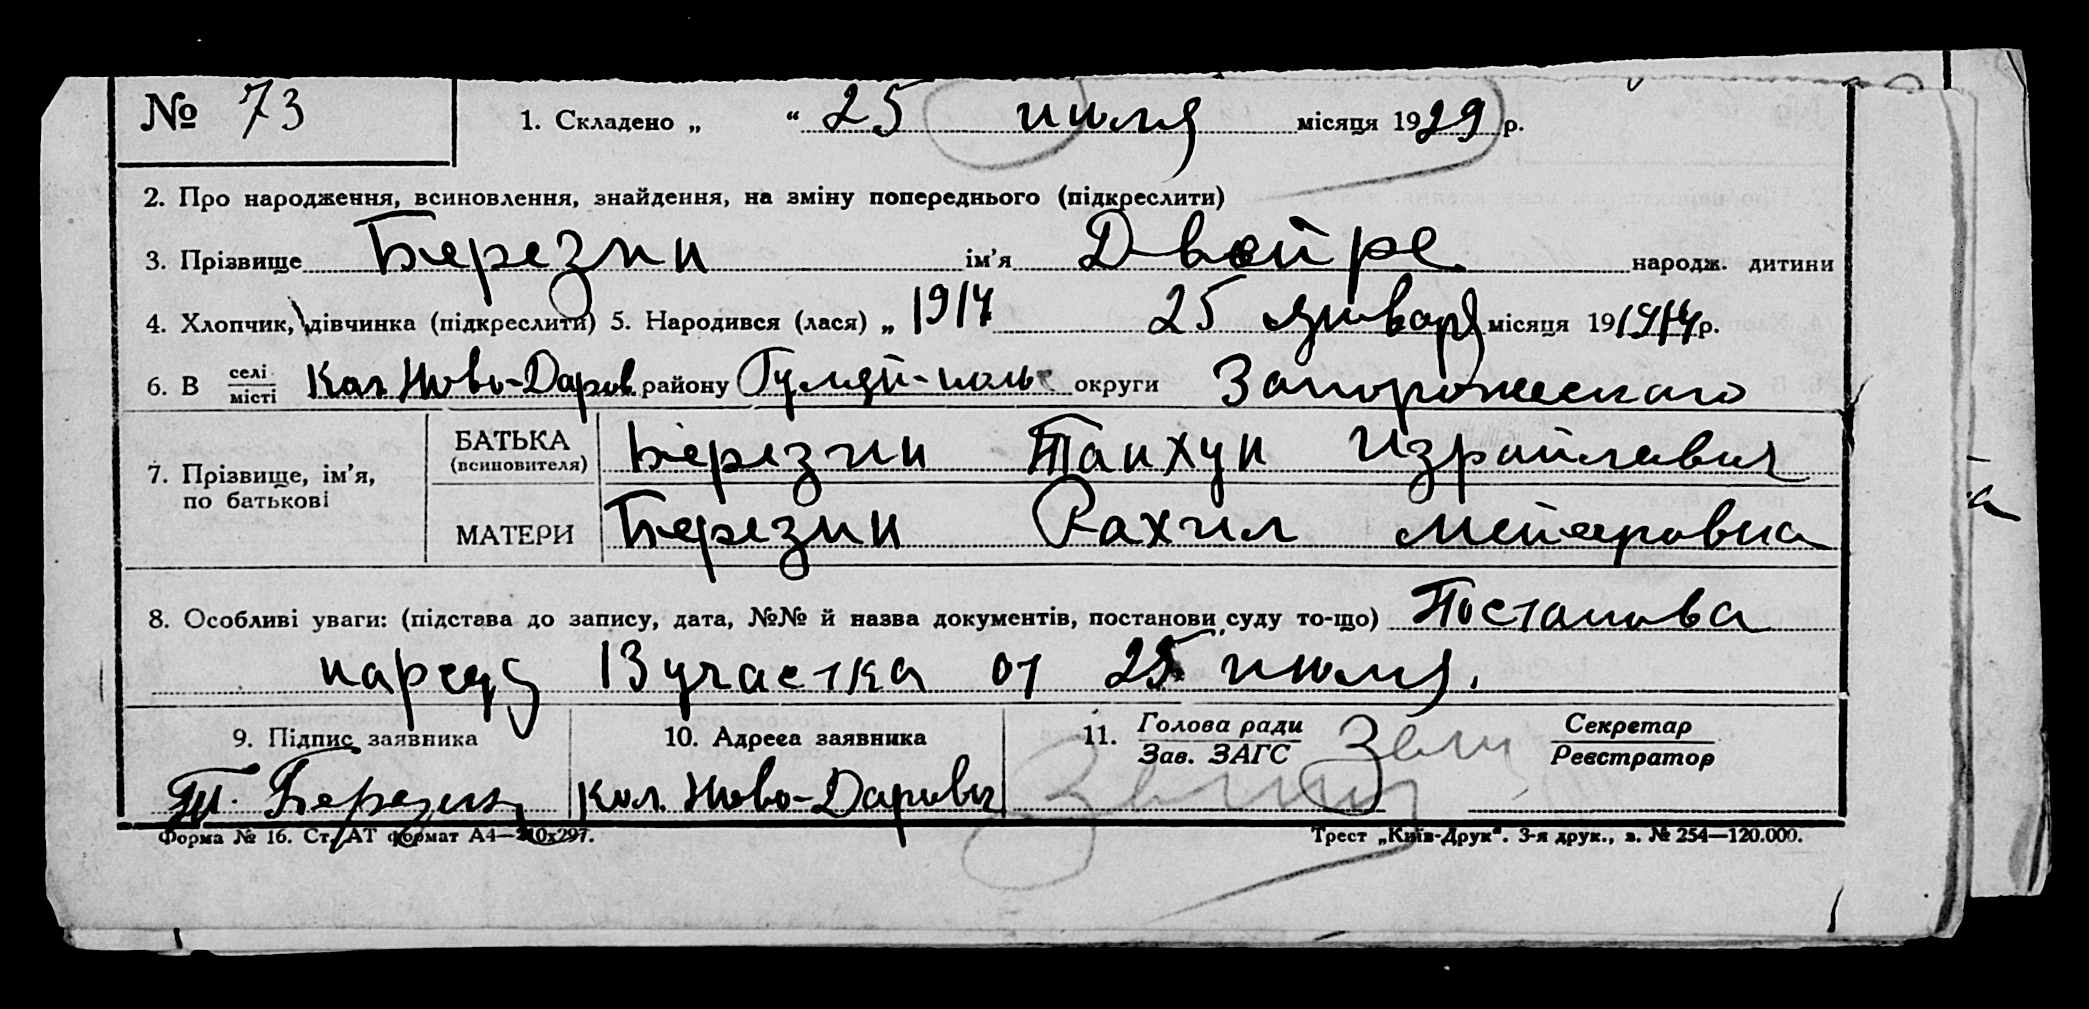 № 73 1. Складено „ “ 25 июля місяця 1929 р.
2. Про народження, всиновлення, знайдення, на зміну попереднього (підкреслити)
3. Прізвище Березин ім’я Двейре народж. дитини
4. Хлопчик, дівчинка (підкреслити) 5. Народився (лася) „ 1914 25 января місяця 191914 р.
6. В селі/місті Кол. Ново-Даров району Гуляй-поль округи Запорожскаго
7. Прізвище, ім’я, по батькові
БАТЬКА (всиновителя) Березин Танхун Израйлевич
МАТЕРИ Березин Рахил Мейеровна
8. Особливі уваги: (підстава до запису, дата, №№ й назва документів, постанови суду то-що) Постанова
нарсуд 13 участка от 25 июля.
9. Підпис заявника 10. Адреса заявника 11. Голова ради/Зав. ЗАГС Секретар/Реєстратор
Т. Березин Кол. Ново-Даровка
Форма № 16. Ст. АТ формат А4—210х297. Трест „Київ-Друк“. 3-я друк., з. № 254—120.000.